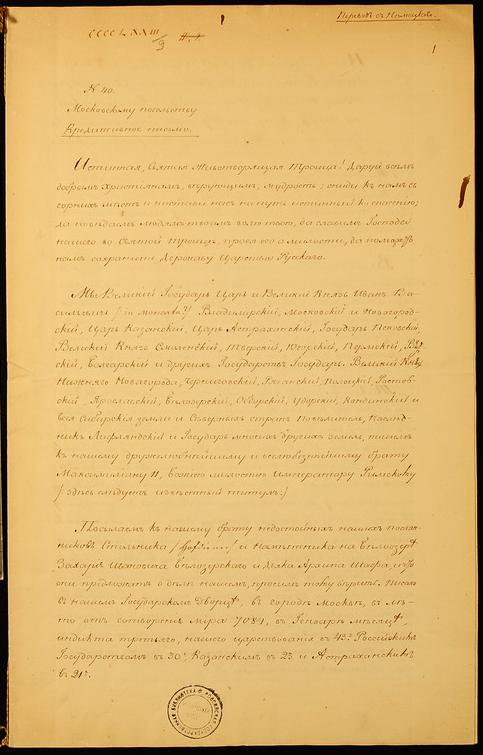 Переводъ съ Нѣмецкаго.
CCCCLXXIII
9
1
№ 40.
Московскому посольству
Кредитивное письмо.
Истинная, Святая Животворящая Троица! Даруй всѣмъ
добрымъ христіанамъ, вѣрующимъ, мудрость; сниди къ намъ съ
горнихъ мѣстъ и настави насъ на путь истинный ко спасенію;
да повѣдаемъ людямъ твоимъ волю твою, да славимъ Господа
нашего во Святой Троицѣ, прося его о милости, да поможетъ
намъ сохранити Державу Царствія Русскаго.
Мы Великій Государь Царь и Великій Князь Иванъ Ва-
сильевичъ Владимірскій, Московскій и Новогород-
скій, Царь Казанскій, Царь Астраханскій, Государь Псковскій
Великій Князь Смоленскій, Тверскій, Югорскій, Пермскій, Вят-
скій, Болгарскій и другихъ Государствъ Государь. Великій Князь
Нижняго Новагорода, Черниговскій, Рязанскій, Полоцкій, Ростов-
скій Ярославскій, Бѣлозерскій, Обдорскій, Кондинскій и
всея Сибирскія земли и Сѣверныхъ странъ Повѣлитель, Наслѣд-
никъ Лифляндскій и Государь многихъ другихъ земель, пишемъ
къ нашему дружелюбнѣйшему и вселюбезнѣйшему брату
Максимиліану II, Божіею милостію Императору Римскому
/:здѣсь слѣдуетъ извѣстный титулъ:/
Посылаемъ къ нашему брату недостойныхъ нашихъ послан-
никовъ Стольника и Намѣстника на Бѣлоозерѣ
Захара Ивановича Бѣлозерскаго и Дьяка
они предложатъ о дѣлѣ нашемъ, просимъ тому вѣрить. Писано
въ нашемъ Государскомъ Дворцѣ, въ городѣ Москвѣ, въ лѣ-
то отъ сотворенія мира 7084, въ Генварѣ мѣсяцѣ,
индикта третьяго, нашего царствованія въ 43е Россійскимъ
Государствомъ въ 30е, Казанскимъ въ 23 и Астраханскимъ
въ 21е.